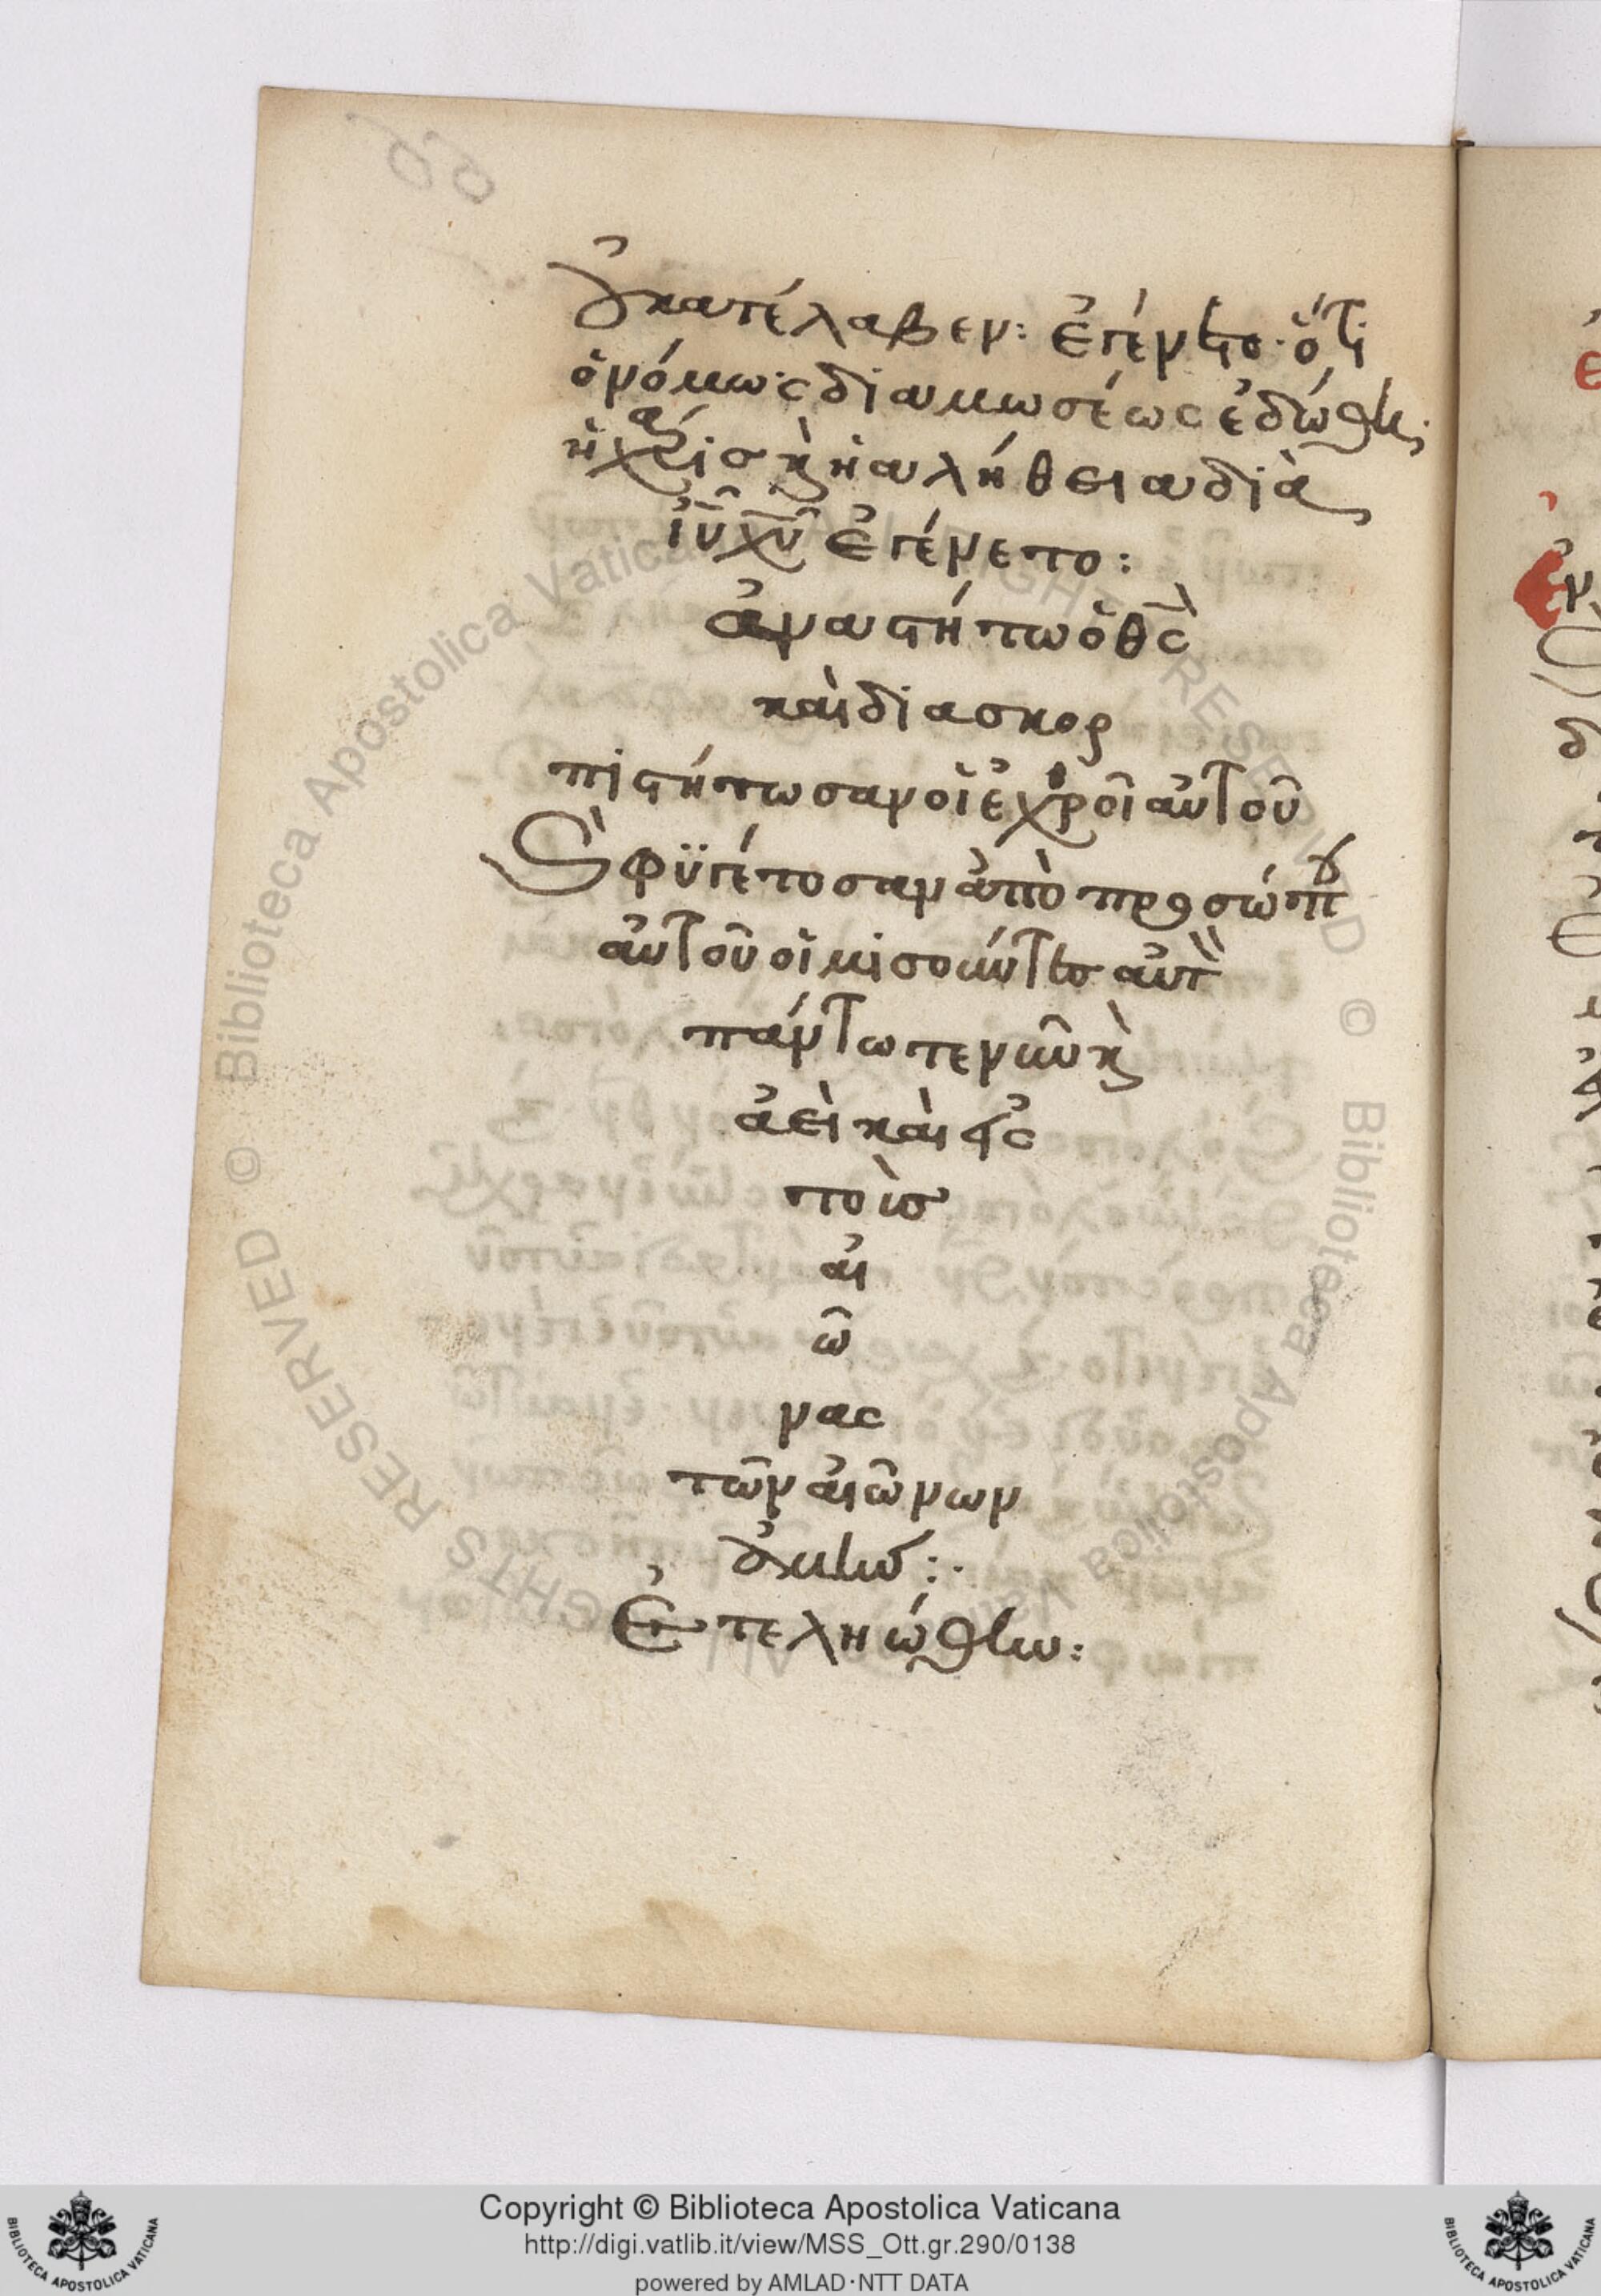 οὐ κατέλαβεν: ἐγένετο· ὅτι
ὁ νόμως διαμωσέως ἐδώθη;
ἡ χάρισ κ̀ ἡ αλήθεια διὰ
ἰῦ χῦ ἐγένετο:
ἀναστήτω ὁ θς̀
καὶ διασκορ
πιστήτωσαν οἱ ἐχθροὶ αὐτοῦ
κ̀ φϋγέτοσαν ἀπὸ προσώπου
αὐτοῦ οἱ μισούντες αὐτὸν
πάντωτε νῦν κ̀
ἀεὶ καὶ εἰς
τοὺσ
αἰ
ῶ
νας
τῶν αἰῶνων
ἀμήν:·
Ἐτεληώθην:
Copyright © Biblioteca Apostolica Vaticana
http://digi.vatlib.it/view/MSS_Ott.gr.290/0138
powered by AMLAD·NTT DATA
BIBLIOTECA APOSTOLICA VATICANA
BIBLIOTECA APOSTOLICA VATICANA